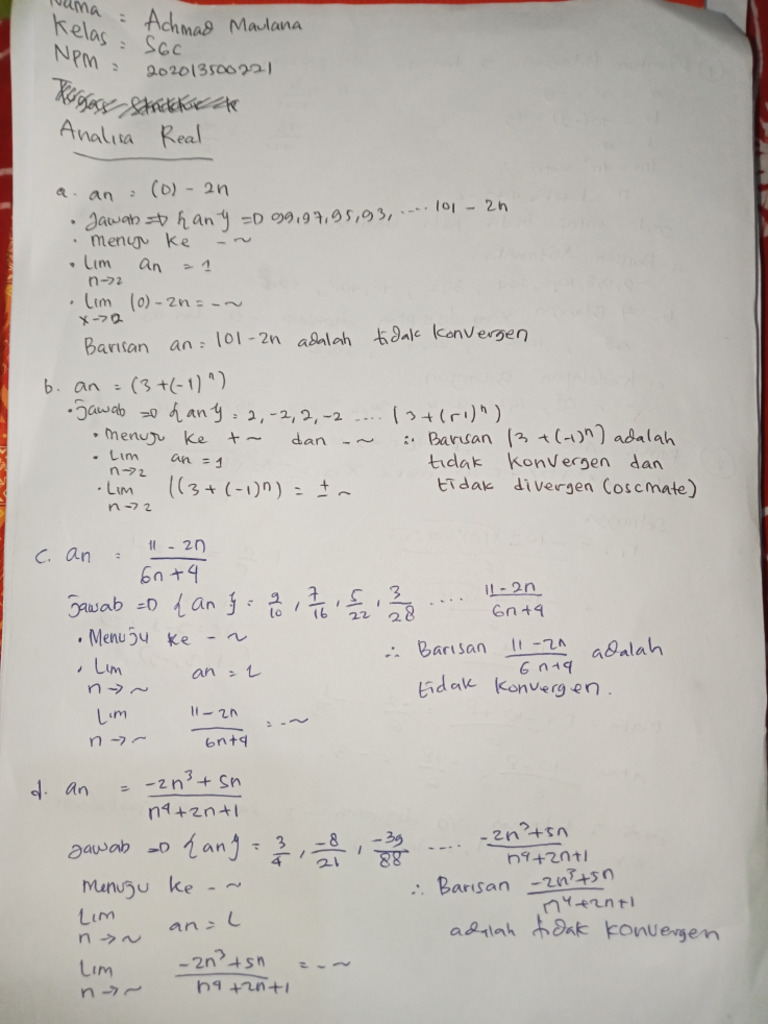 Nama : Achmad Maulana
Kelas : SGC
NPM : 202013500221
Analisa Real
a. an = (0) - 2n
• Jawab => {an} => 99, 97, 95, 93, .... 101 - 2n
• menuju ke - ~
• Lim an = 1
n→2
• Lim (0) - 2n = - ~
x→2
Barisan an = 101 - 2n adalah tidak konvergen
b. an = (3 + (-1)ⁿ)
• Jawab => {an} = 2, -2, 2, -2 .... (3 + (-1)ⁿ)
• menuju ke + ~ dan - ~
• Lim an = 1
n→2
• Lim ((3 + (-1)ⁿ) = ± ~
n→2
∴ Barisan (3 + (-1)ⁿ) adalah
tidak konvergen dan
tidak divergen (oscmate)
c. an = 11 - 2n / 6n + 4
Jawab => {an} = 9/10, 7/16, 5/22, 3/28 .... 11 - 2n / 6n + 4
• Menuju ke - ~
• Lim an = L
n→~
Lim 11 - 2n / 6n + 4 = - ~
n→~
∴ Barisan 11 - 2n / 6n + 4 adalah
tidak konvergen.
d. an = -2n³ + 5n / n⁴ + 2n + 1
Jawab => {an} = 3/4, -8/21, -39/88 .... -2n³ + 5n / n⁴ + 2n + 1
Menuju ke - ~
Lim an = L
n→~
Lim -2n³ + 5n / n⁴ + 2n + 1 = - ~
n→~
∴ Barisan -2n³ + 5n / n⁴ + 2n + 1
adalah tidak konvergen